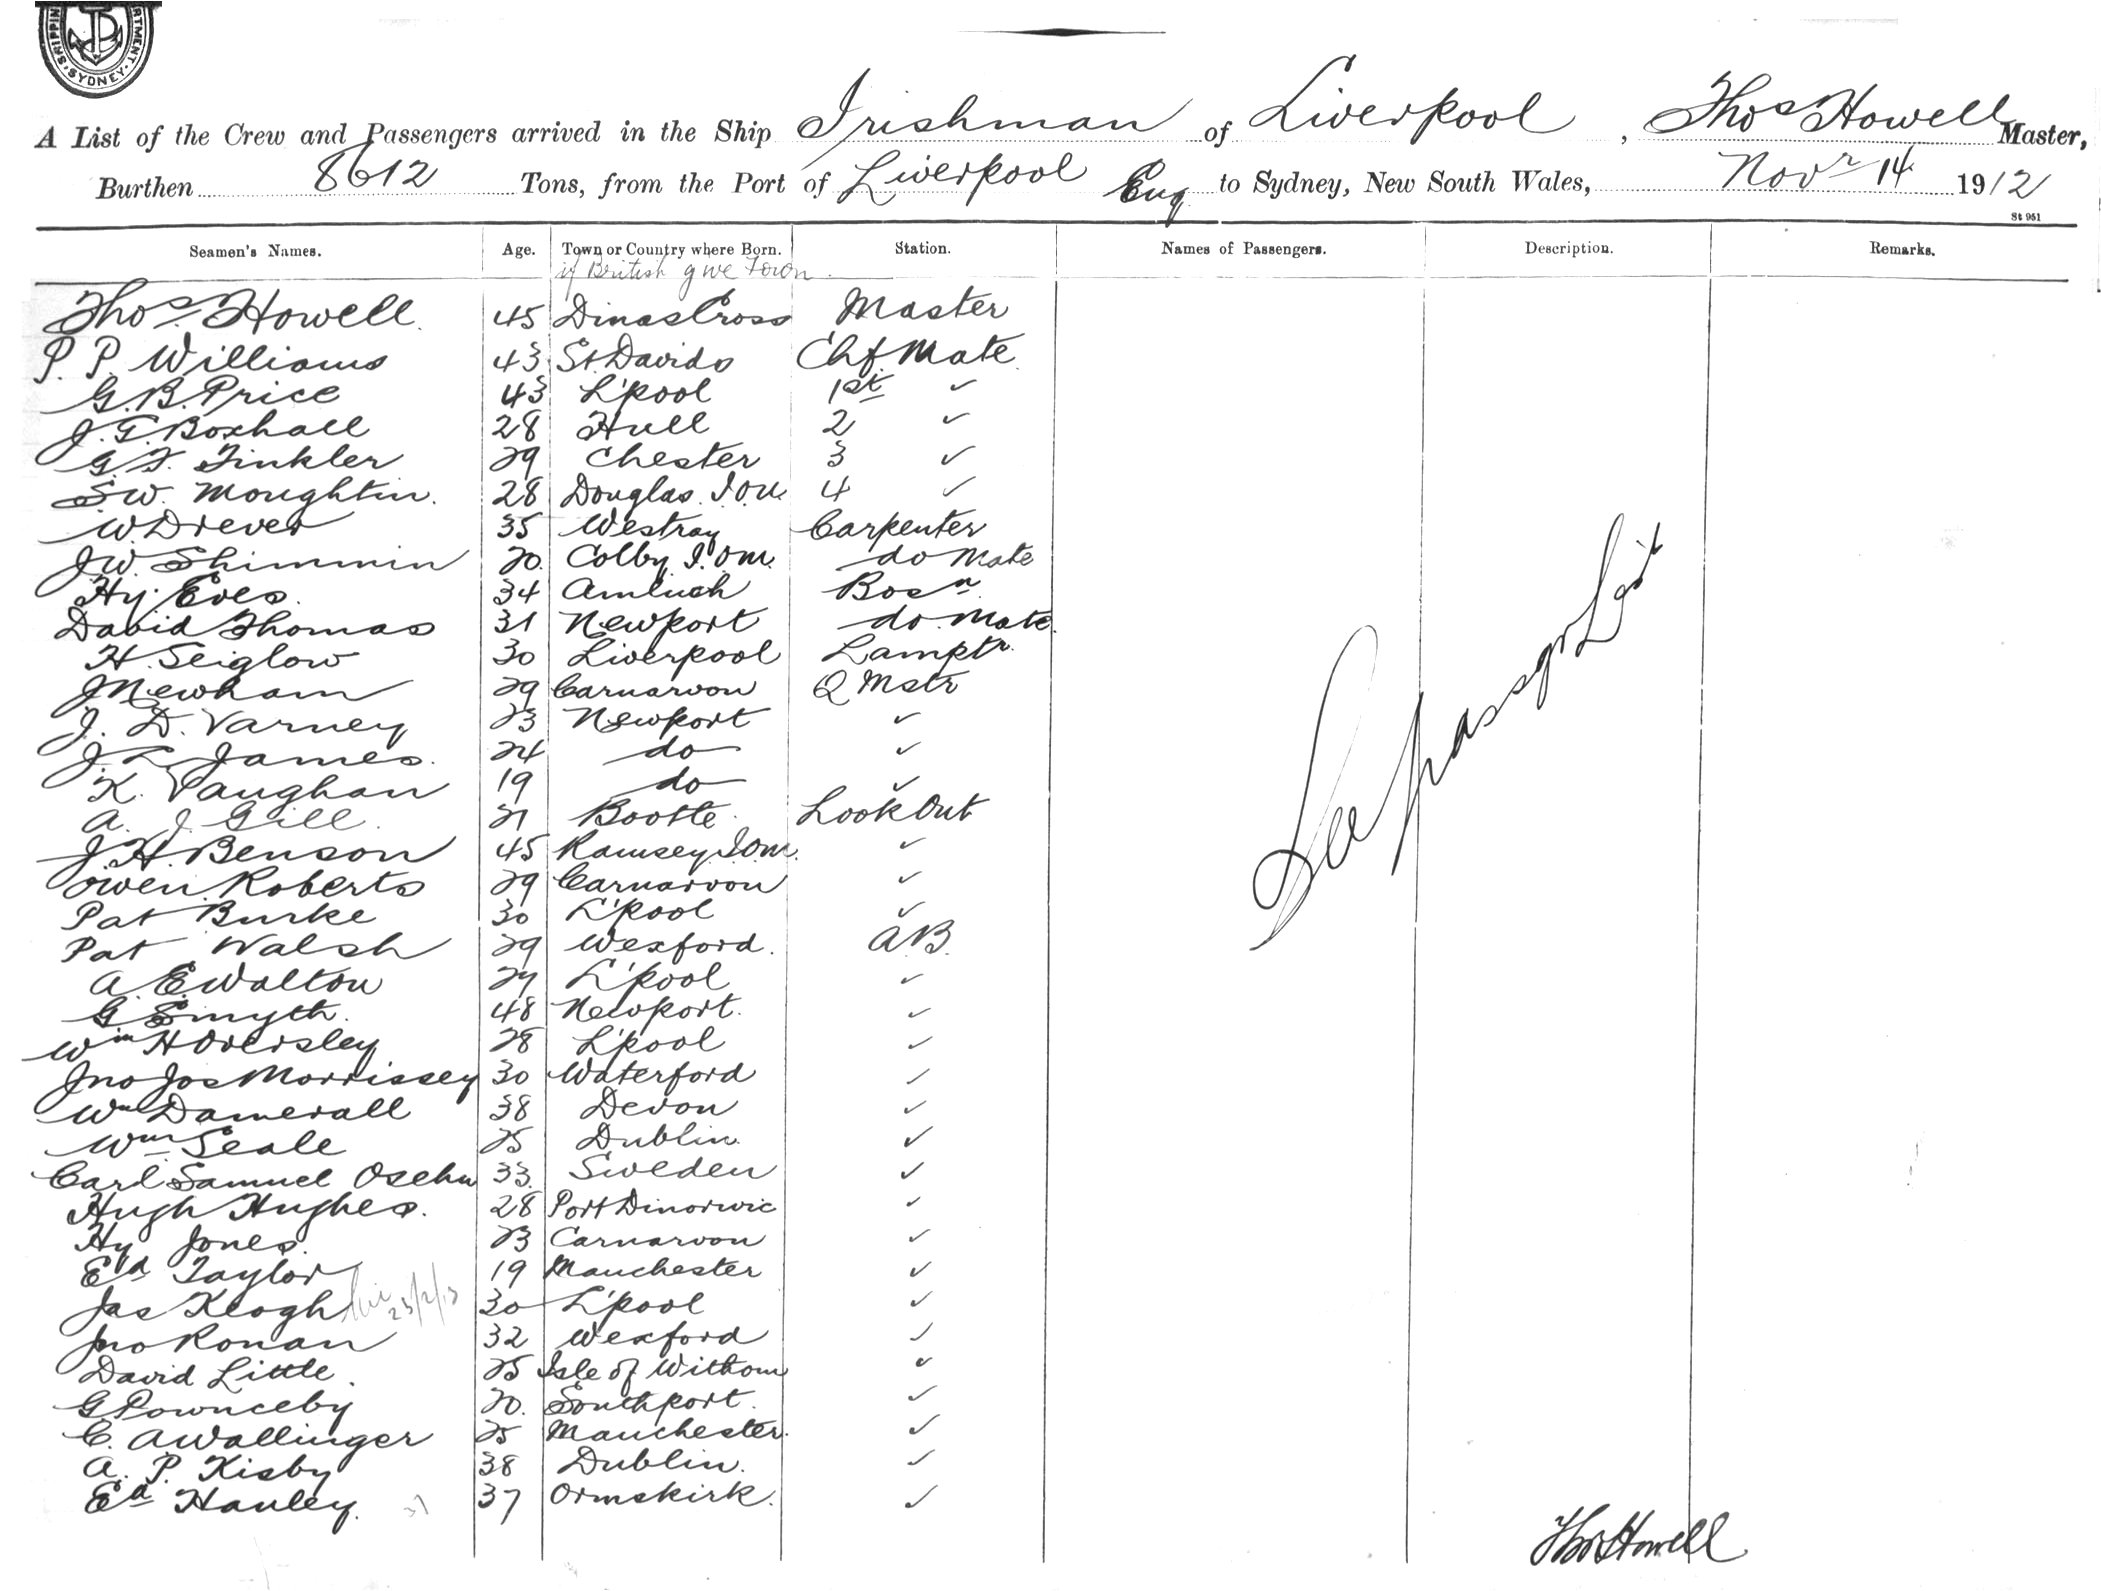 SHIPPIN RTMENT SYDNEY
A List of the Crew and Passengers arrived in the Ship Irishman of Liverpool, Thos Howell Master,
Burthen 8612 Tons, from the Port of Liverpool Eng to Sydney, New South Wales, Novr 14 1912
St 951
Seamen's Names. Age. Town or Country where Born. Station. Names of Passengers. Description. Remarks.
if British give Town
Thos. Howell. 45 Dinas Cross Master
P. P. Williams 43 St Davids Chf. Mate
G. B. Price 43 L'pool 1st ✓
J. G. Boxhall 28 Hull 2 ✓
G. F. Tinkler 29 Chester 3 ✓
S. W. Moughtin. 28 Douglas. I.O.M. 4 ✓
W. Drever 35 Westray Carpenter
J. W. Shimmin 20. Colby I.O.M. do Mate
Hy. Eves. 34 Amluch Bosn
David Thomas 31 Newport do. Mate.
H. Seiglow 30 Liverpool Lamptr.
J Newham 29 Carnarvon Q Mstr
J. D. Varney 23 Newport ✓
J. L. James. 24 do ✓
K. Vaughan 19 do ✓
A. J Gill. 21 Bootle. Look Out
J. H. Benson 45 Ramsey I.O.M. ✓
Owen Roberts 29 Carnarvon ✓
Pat Burke 30 L'pool ✓
Pat Walsh 29 Wexford. A.B.
A. E. Walton 27 L'pool ✓
G. Smyth. 48 Newport. ✓
Wm H Oversley 28 L'pool ✓
Jno Jos Morrissey 30 Waterford ✓
Wm Damerall 38 Devon ✓
Wm Seale 25 Dublin. ✓
Carl Samuel 33. Sweden ✓
Hugh Hughes. 28 Port Dinorwic ✓
Hy Jones. 23 Carnarvon ✓
Ed Taylor 19 Manchester ✓
Jas Keogh 25/2/13 30 L'pool ✓
Jno Ronan 32 Wexford ✓
David Little. 25 Isle of Withorn ✓
G Pownceby 20. Southport. ✓
C. A Wallinger 25 Manchester. ✓
A. P. Kisby 38 Dublin. ✓
Ed Hanley. 37 37 Ormskirk. ✓
See passgr List
Thos Howell